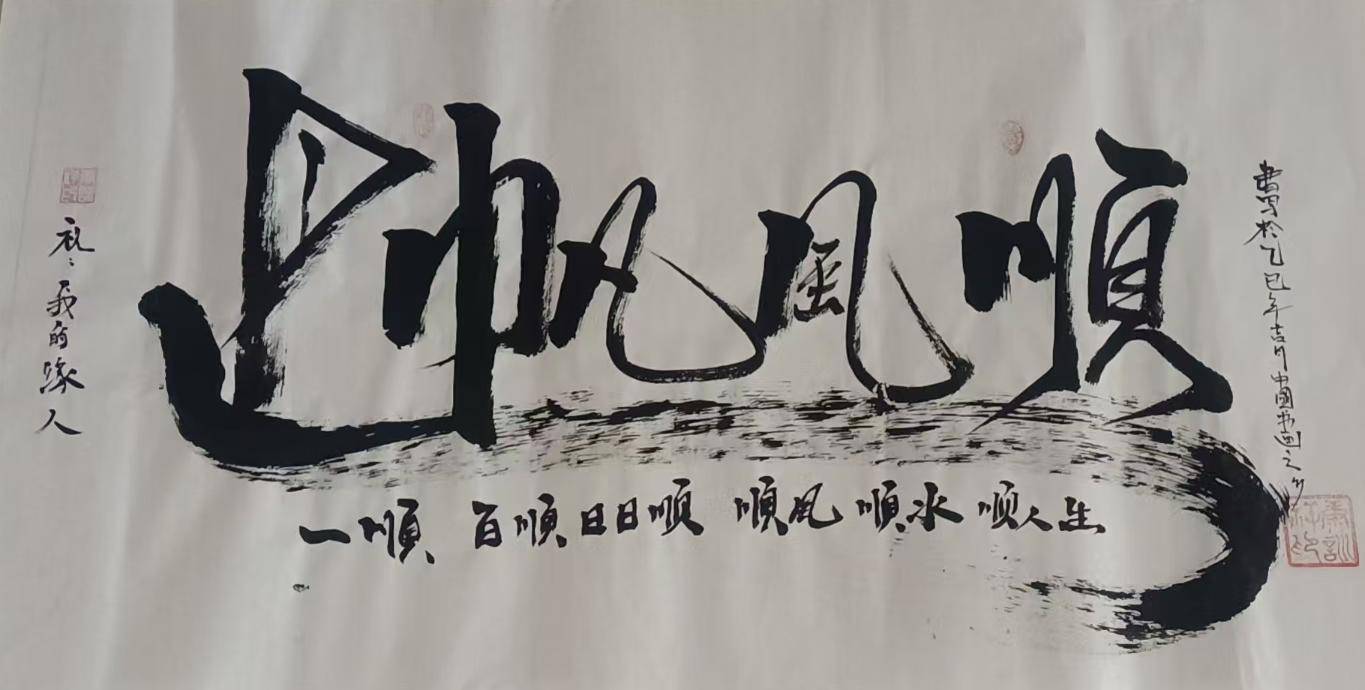 一帆風順
一順 百順 日日順 順風 順水 順人生
書於乙巳年吉月中國書画之乡
我的缘人